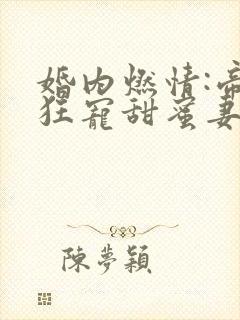 婚内燃情:帝
狂寵甜蜜妻
陳夢穎